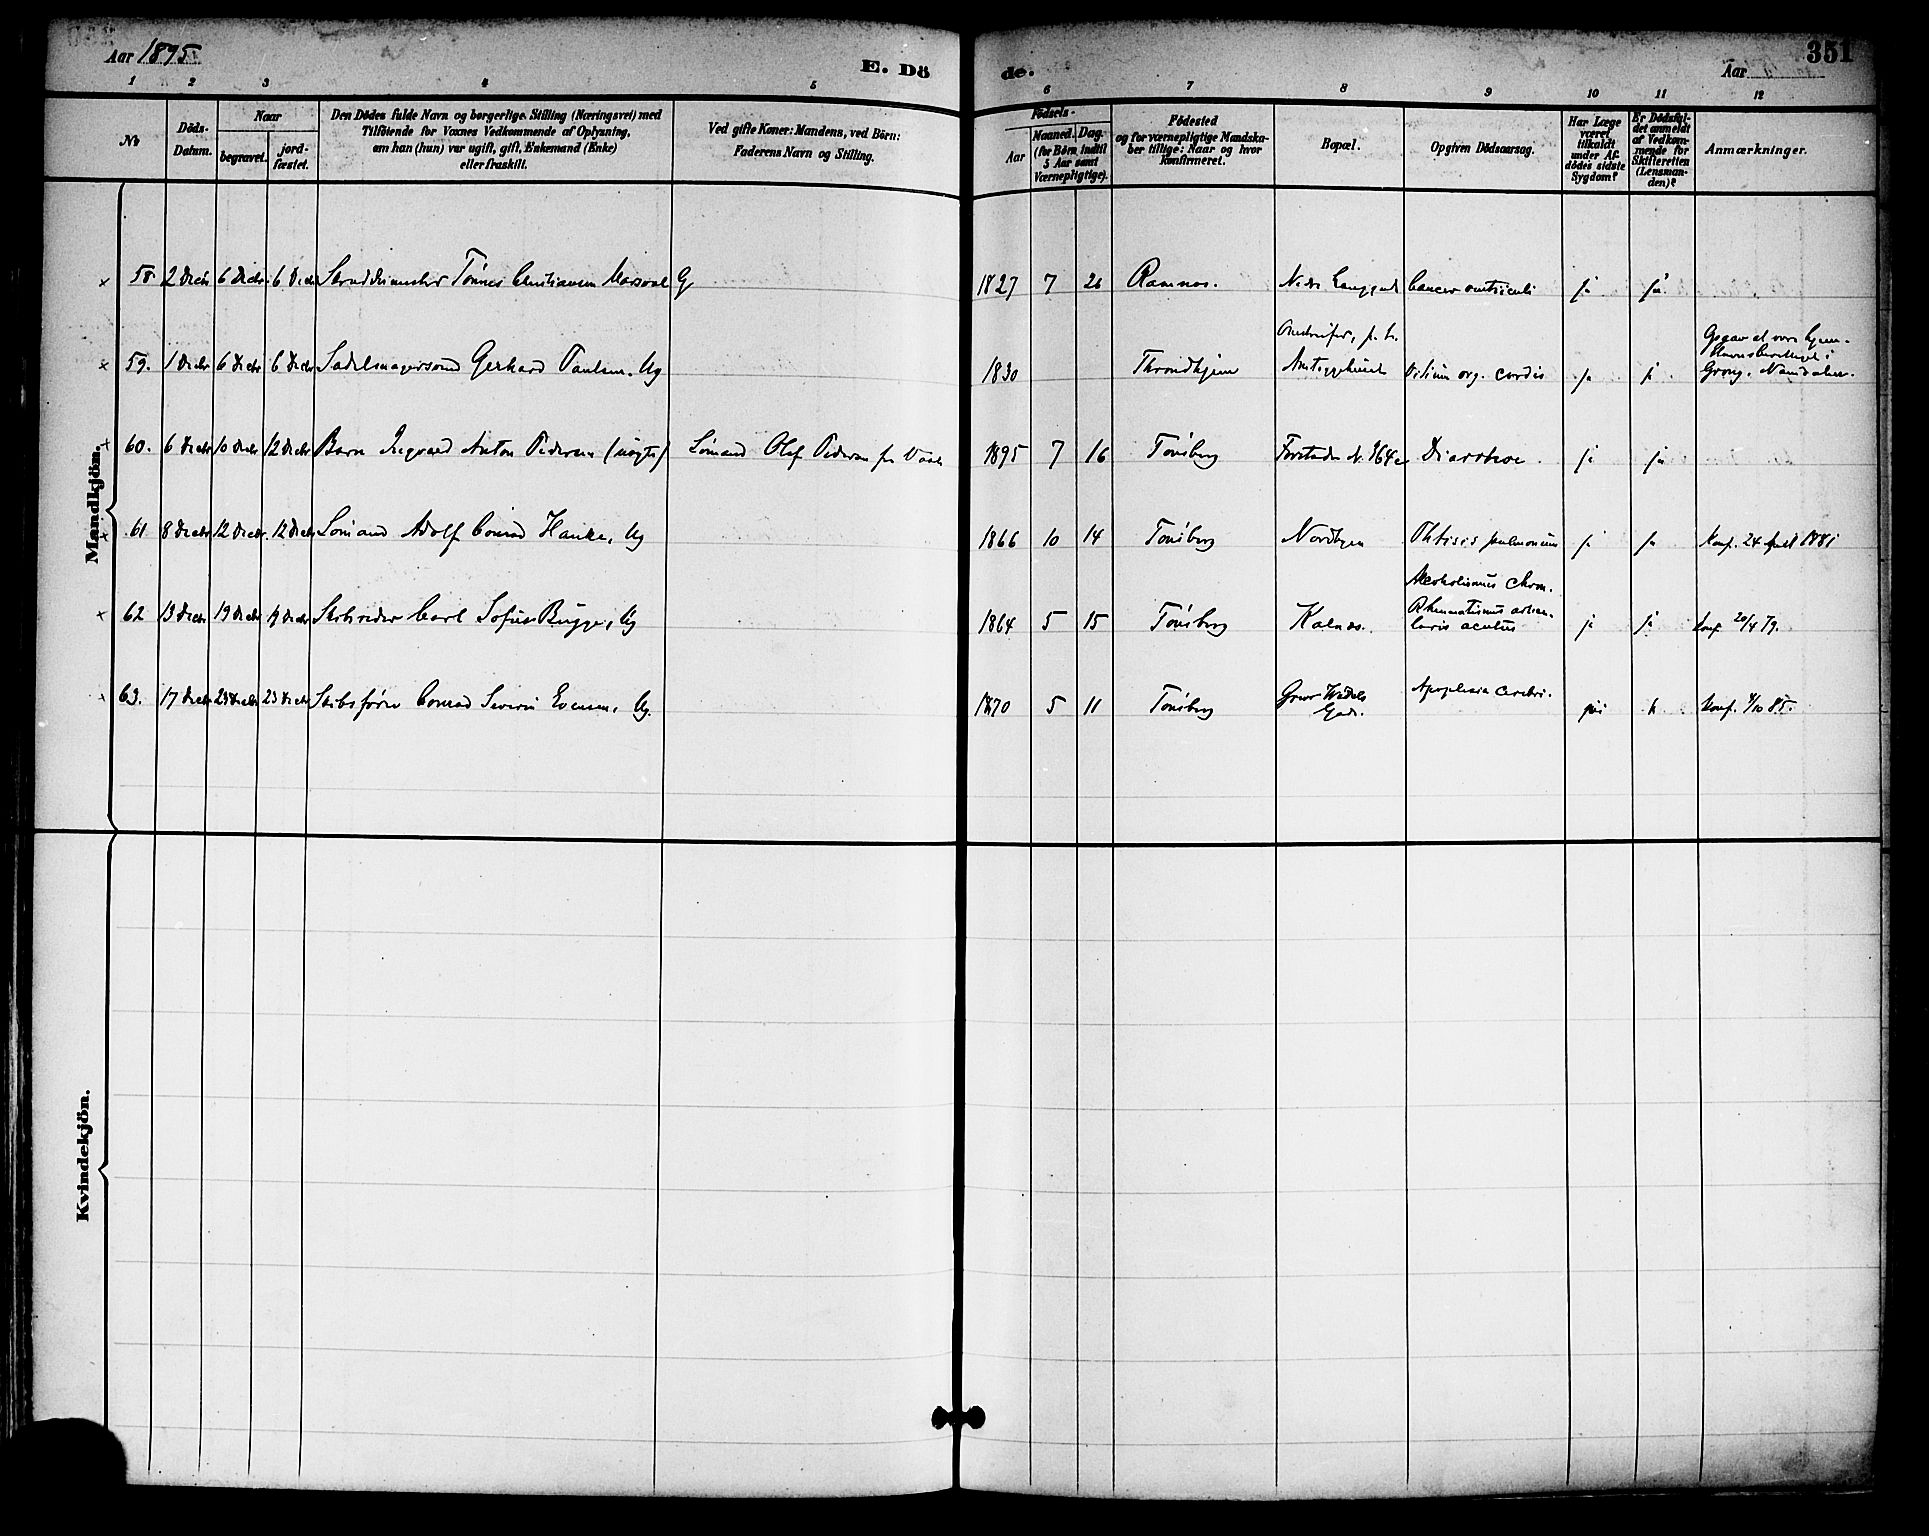 Aar 1895
E. Dö
de.
Aar
351
1 2 3 4 5
6 7 8 9 10 11 12
No
Döds-
Datum.
Naar
begravet.
jord-
fæstet.
Den Dödes fulde Navn og borgerlige Stilling (Næringsvei) med
Tilföiende for Voxnes Vedkommende af Oplysning,
om han (hun) var ugift, gift, Enkemand (Enke)
eller fraskilt.
Ved gifte Koner: Mandens, ved Börn:
Faderens Navn og Stilling.
Födsels-
Aar
Maaned. Dag.
(for Börn indtil
5 Aar samt
Værnepligtige).
Födested
og for værnepligtige Mandska-
ber tillige: Naar og hvor
konfirmeret.
Bopæl.
Opgiven Dödsaarsag.
Har Læge
været
tilkaldt
under Af-
dödes sidste
Sygdom?
Er Dödsfal-
det anmeldt
af Vedkom-
mende for
Skifteretten
(Lensman-
den)?
Anmærkninger.
Mandkjön.
58. 2 Decbr 6 Decbr. 6 Decbr Tönnes Christiansen G
1827 7 26 Ramnæs. Nedre Langgade Cancer ventriculi ja ja
59. 1 Decbr 6 Decbr 6 Decbr Sadelmagersvend Gerhard Paulsen. Ug
1830 Throndhjem Amtssygehuset Vitium org. cordis ja ja
Grong, Namdalen.
60. 6 Decbr 10 Decbr 12 Decbr Barn Ingvard Anton Pedersen (uægte) Sömand Olaf Pedersen fra Vaale
1895 7 16 Tönsberg Forstaden N. 164 Diarrhoe. ja ja
61 8 Decbr 12 Decbr. 12 Decbr Sömand Adolf Conrad Hanke, Ug
1866 10 14 Tönsberg Nordbyen Phtisis pulmonum ja ja Konf. 24 April 1881
62 13 Decbr 19 Decbr 19 Decbr Skibsreder Carl Sofus Bugge, Ug
1864 5 15 Tönsberg Kalnæs. Alcoholismus chron.
Rheumatismus articu-
laris acutus ja ja Konf. 20/4 79.
63. 17 Decbr 23 Decbr 23 Decbr Skibsförer Conrad Severin Evensen, Ug.
1870 5 11 Tönsberg Grev Wedels
Gade. Apoplexia cerebri. Konf. 4/10 85.
Kvindekjön.